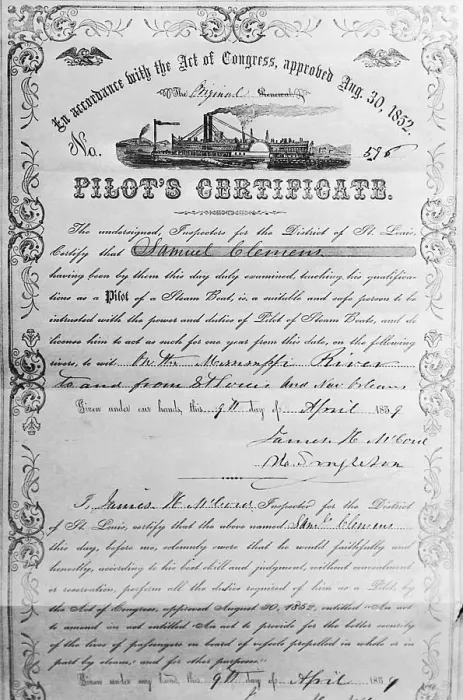 In accordance with the Act of Congress, approved Aug. 30, 1852.
The Original Renewal
No. 596
PILOT'S CERTIFICATE.
The undersigned, Inspectors for the District of St. Louis,
Certify that Samuel Clemens
having been by them this day duly examined, touching his qualifica-
tions as a Pilot of a Steam Boat, is a suitable and safe person to be
intrusted with the power and duties of Pilot of Steam Boats, and do
license him to act as such for one year from this date, on the following
rivers, to wit On the Mississippi River
to and from St Louis and New Orleans
Given under our hands, this 9th day of April 1859
James H McCord
Singleton
I, James H McCord Inspector for the District
of St. Louis, certify that the above named Saml Clemens
this day, before me, solemnly swore that he would faithfully and
honestly, according to his best skill and judgment, without concealment
or reservation, perform all the duties required of him as a Pilot, by
the Act of Congress, approved August 30, 1852, entitled "An act
to amend an act entitled "An act to provide for the better security
of the lives of passengers on board of vessels propelled in whole or in
part by steam," and for other purposes."
Given under my hand, this 9th day of April 1859